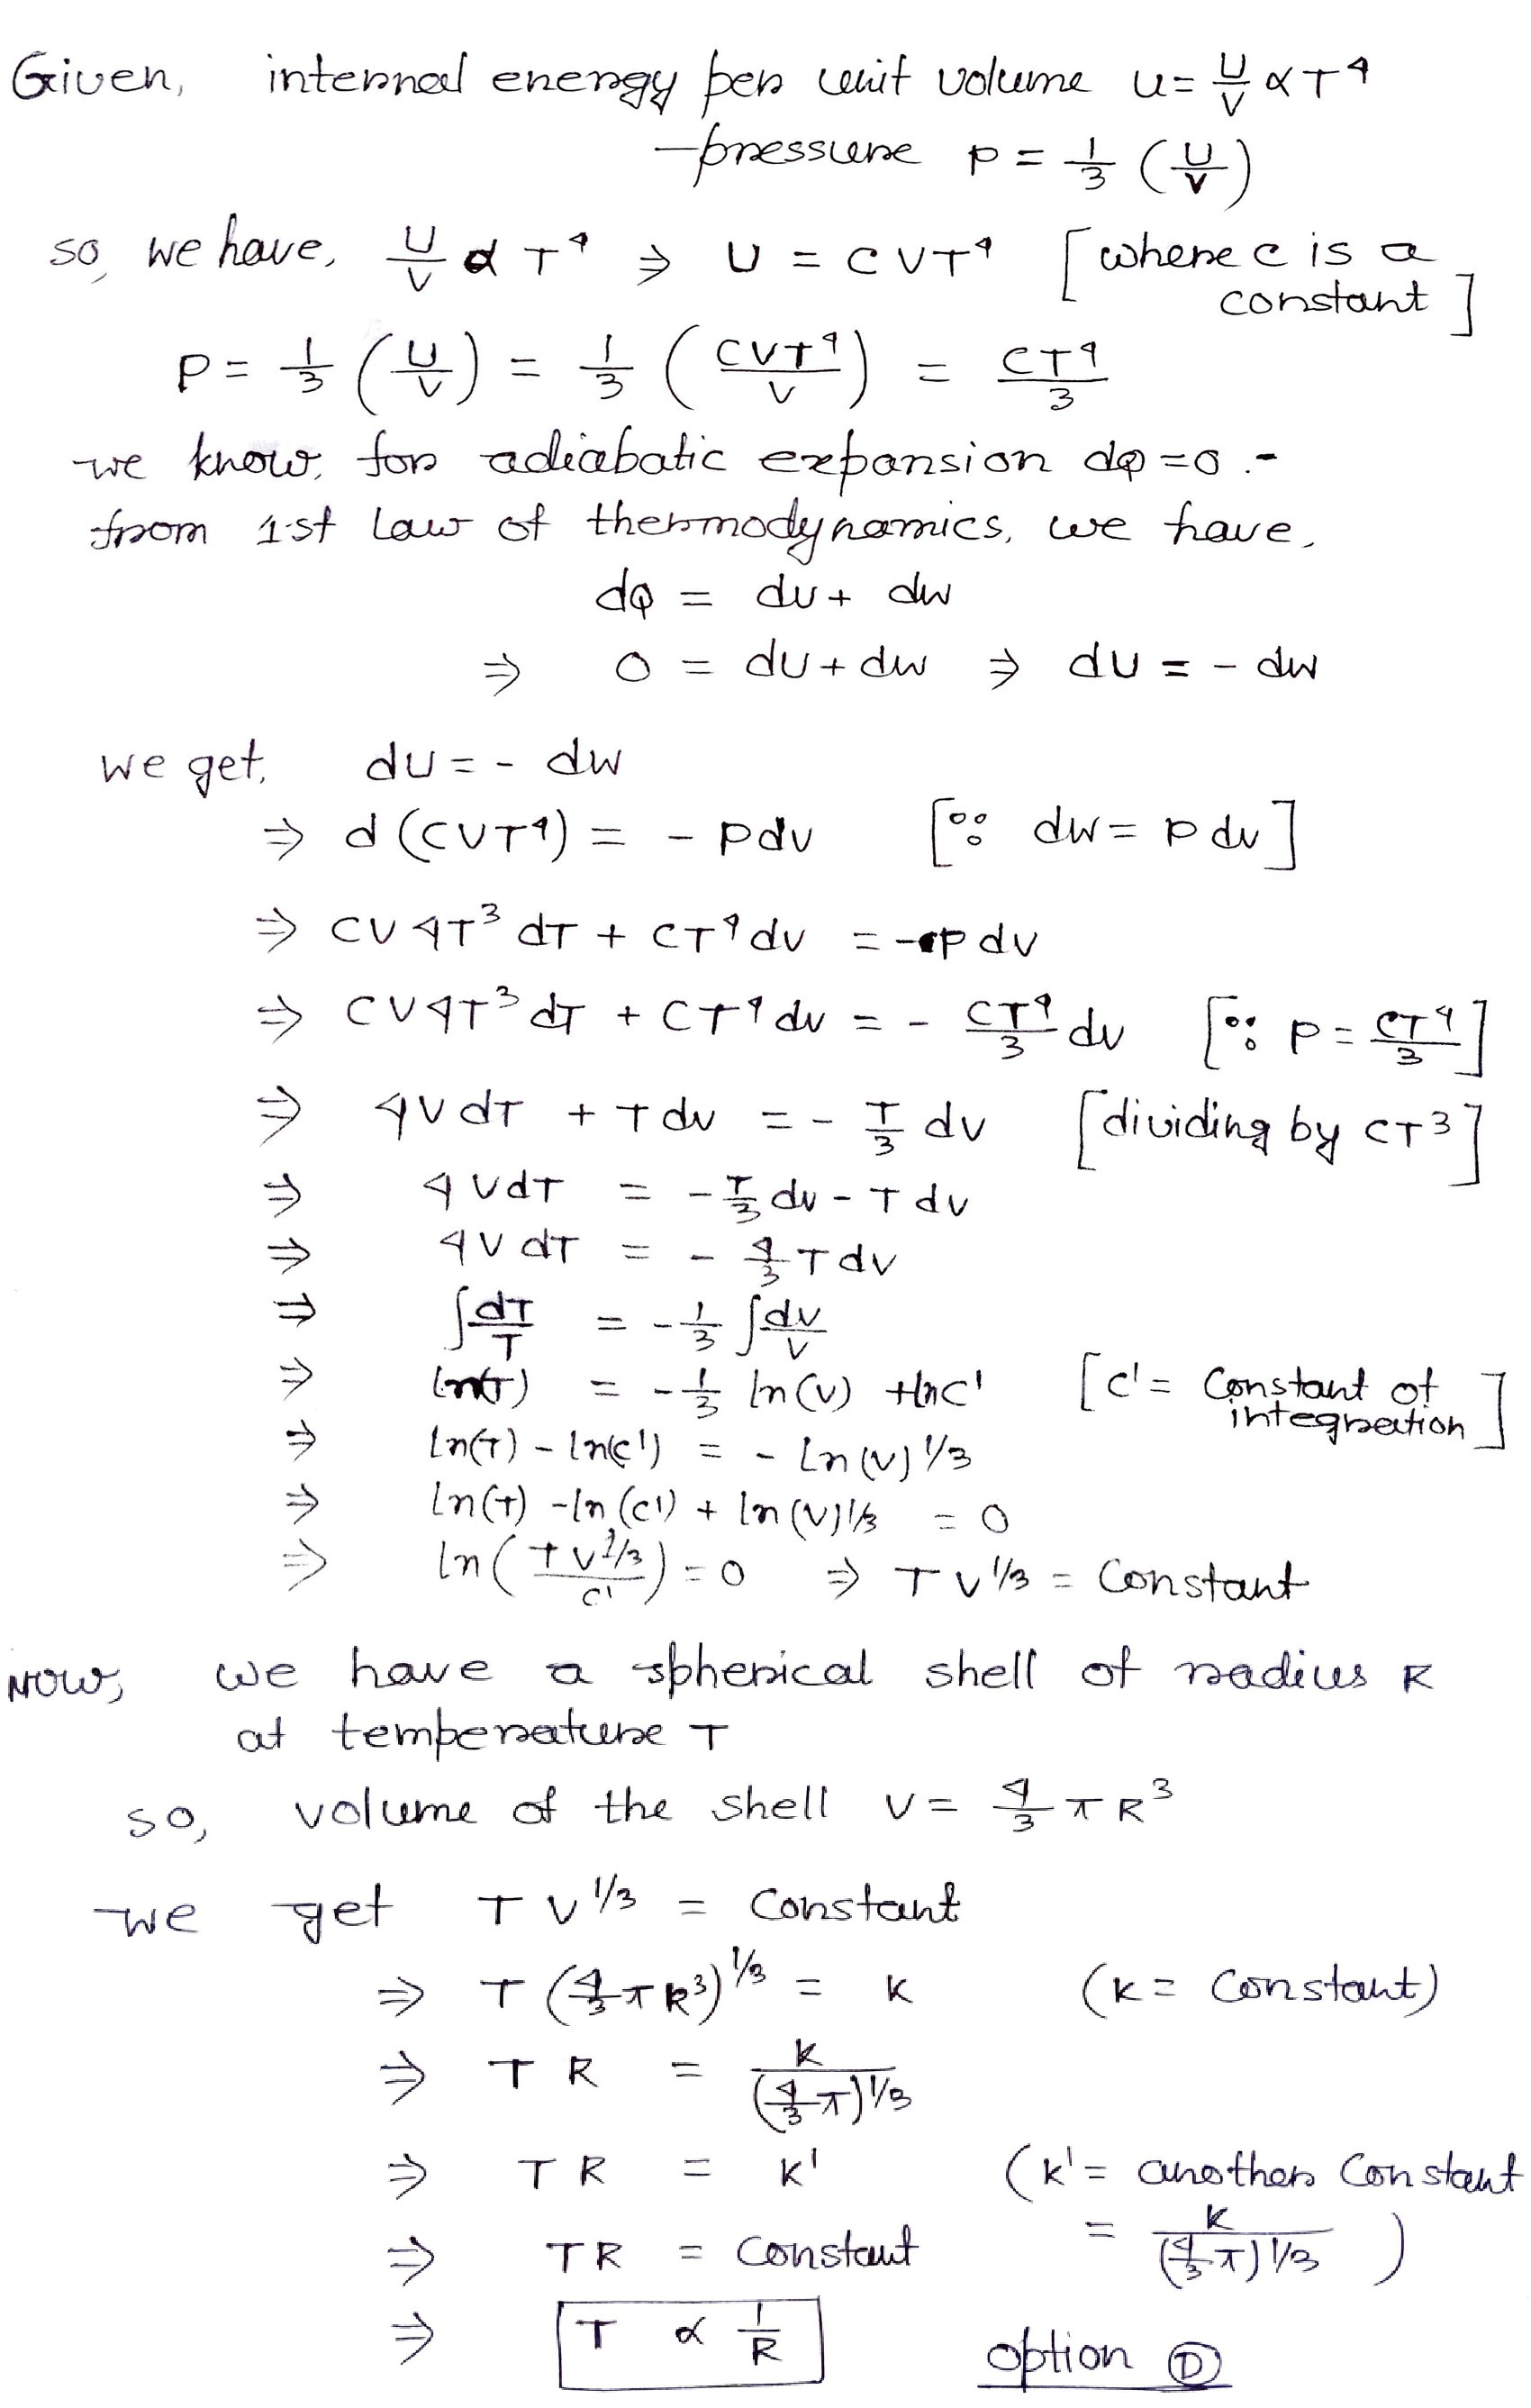 Given, internal energy per unit volume u = U/V ∝ T⁴
pressure p = 1/3 (U/V)
so, we have, U/V ∝ T⁴ ⇒ U = CVT⁴ [where c is a constant]
P = 1/3 (U/V) = 1/3 (CVT⁴/V) = CT⁴/3
we know, for adiabatic expansion dQ = 0.-
from 1st Law of thermodynamics, we have,
dQ = du + dw
⇒ 0 = dU + dw ⇒ dU = - dw
we get, dU = - dw
⇒ d(CVT⁴) = - Pdv [∵ dw = p dv]
⇒ CV4T³ dT + CT⁴ dv = - p dv
⇒ CV4T³ dT + CT⁴ dv = - CT⁴/3 dv [∵ P = CT⁴/3]
⇒ 4V dT + T dv = - T/3 dv [dividing by CT³]
⇒ 4VdT = - T/3 dv - T dv
⇒ 4V dT = - 4/3 T dv
⇒ ∫dT/T = - 1/3 ∫dv/V
⇒ ln(T) = - 1/3 ln(v) + lnC' [C' = Constant of integration]
⇒ Ln(T) - ln(c') = - Ln(v)1/3
⇒ Ln(T) - ln(c') + ln(V)1/3 = 0
⇒ ln(TV^1/3/C') = 0 ⇒ TV^1/3 = Constant
NOW, we have a spherical shell of radius R
at temperature T
so, volume of the shell V = 4/3 πR³
we get TV^1/3 = Constant
⇒ T(4/3 πR³)^1/3 = K (K = Constant)
⇒ TR = K/(4/3 π)^1/3
⇒ TR = K' (K' = another Constant
⇒ TR = Constant = K/(4/3 π)^1/3)
⇒ T ∝ 1/R option D